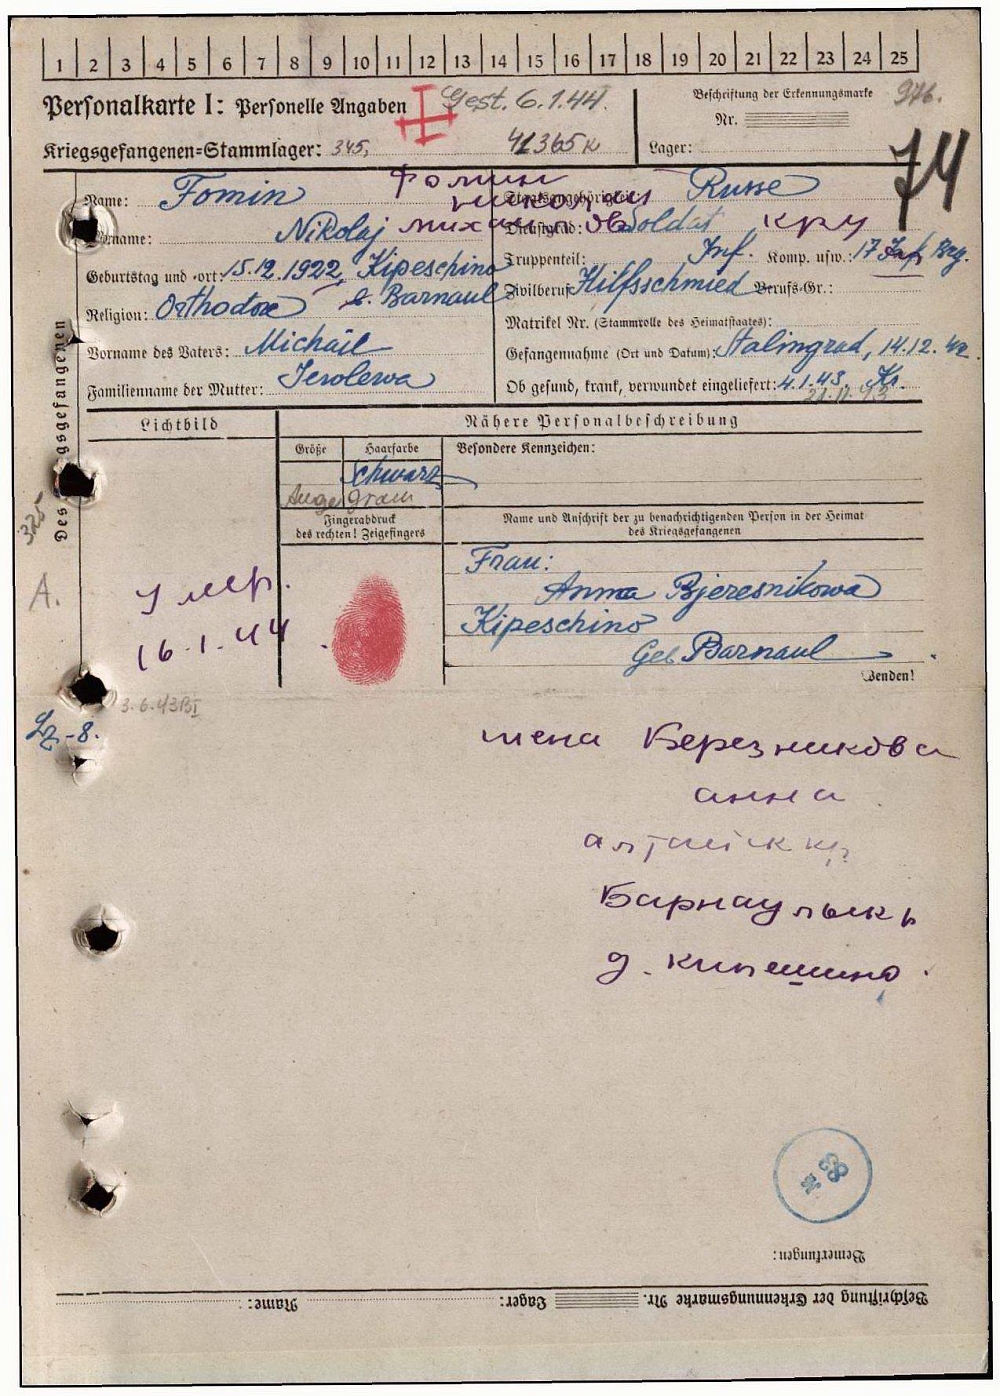 1 2 3 4 5 6 7 8 9 10 11 12 13 14 15 16 17 18 19 20 21 22 23 24 25
Personalkarte I: Personelle Angaben
Gest. 6.1.44.
Beschriftung der Erkennungsmarke
976.
Nr.
Kriegsgefangenen-Stammlager: 345,
41365 K
Lager:
74
Des Kriegsgefangenen
Name: Fomin
Фомин
Staatsangehörigkeit: Russe
Николай
Vorname: Nikolaj
Михайлов
Dienstgrad: Soldat
кру
Truppenteil: Inf. Komp. usw.: 17 Inf. Brg.
Geburtstag und -ort: 15.12.1922, Kipeschino
b. Barnaul
Zivilberuf: Hilfsschmied Berufs-Gr.:
Religion: Orthodox
Matrikel Nr. (Stammrolle des Heimatstaates):
Vorname des Vaters: Michail
Gefangennahme (Ort und Datum): Stalingrad, 14.12.42.
Familienname der Mutter:
Ob gesund, krank, verwundet eingeliefert: 4.1.43. Kr.
Lichtbild
Nähere Personalbeschreibung
Größe
Haarfarbe
Besondere Kennzeichen:
schwarz
Auge grau
Fingerabdruck
des rechten! Zeigefingers
Name und Anschrift der zu benachrichtigenden Person in der Heimat
des Kriegsgefangenen
325
A.
Frau:
Anna Bjeresnikowa
Kipeschino
Geb Barnaul
Умер.
16.1.44
Wenden!
3.6.43
Lz-8.
жена Березникова
анна
алтайск кр
Барнаульск р
д. кипешино.
83
Bemerkungen:
Beschriftung der Erkennungsmarke Nr. Lager: Name: